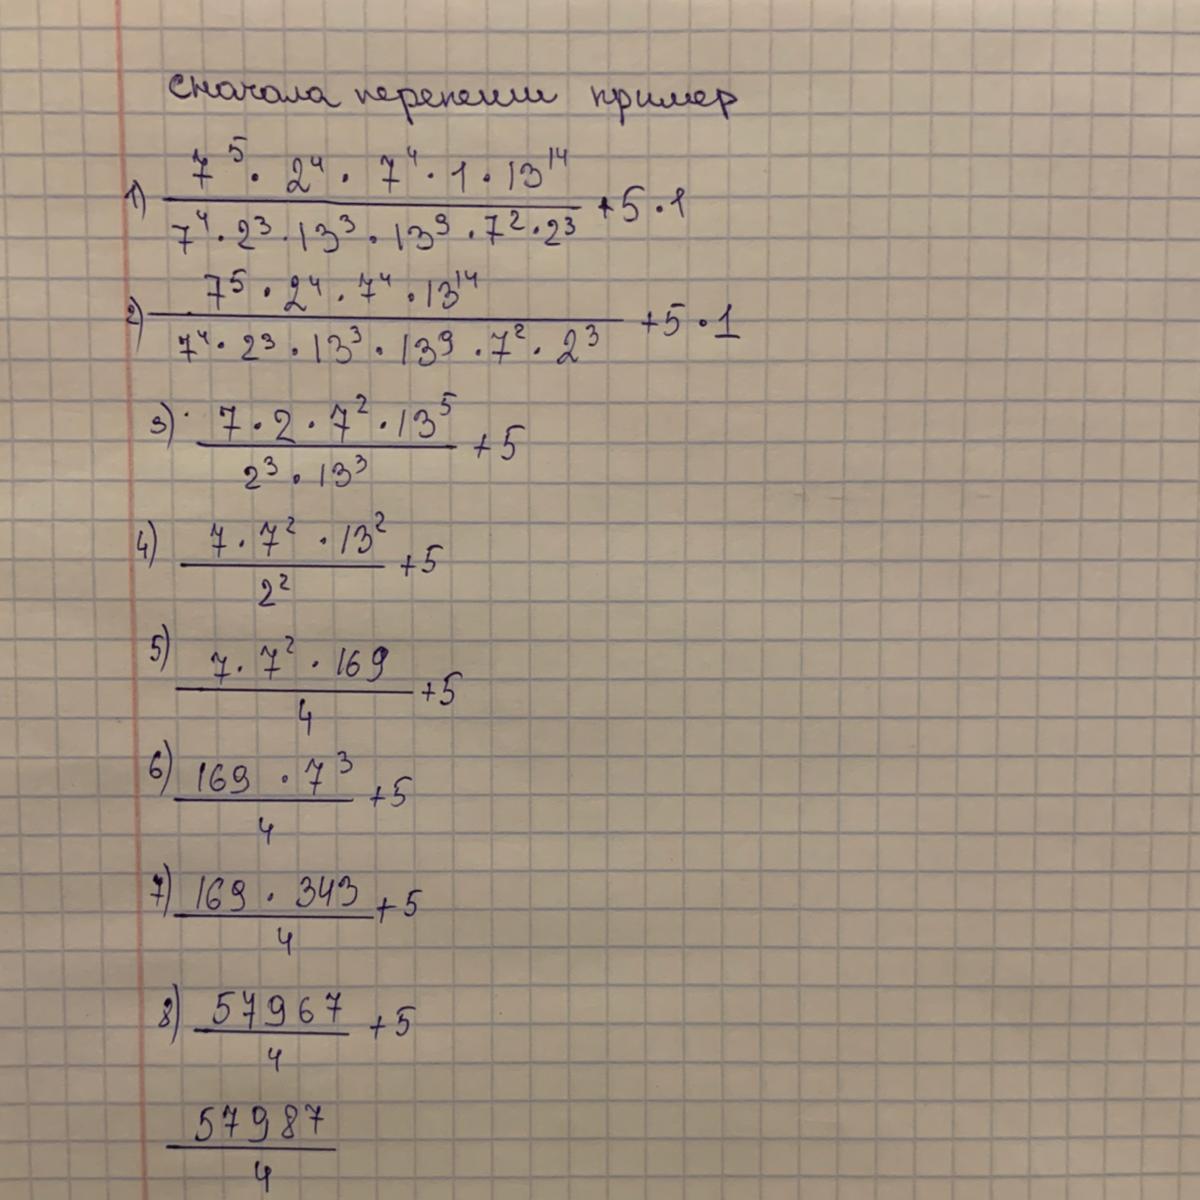 сначала перепеши пример
1) (7^5 · 2^4 · 7^4 · 1 · 13^14) / (7^4 · 2^3 · 13^3 · 13^9 · 7^2 · 2^3) + 5 · 1
2) (7^5 · 2^4 · 7^4 · 13^14) / (7^4 · 2^3 · 13^3 · 13^9 · 7^2 · 2^3) + 5 · 1
3) (7 · 2 · 7^2 · 13^5) / (2^3 · 13^3) + 5
4) (7 · 7^2 · 13^2) / 2^2 + 5
5) (7 · 7^2 · 169) / 4 + 5
6) (169 · 7^3) / 4 + 5
7) (169 · 343) / 4 + 5
8) 57967 / 4 + 5
57987 / 4